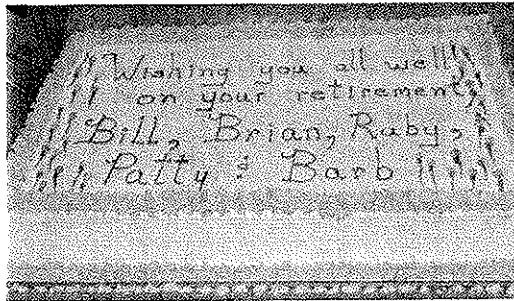 Wishing you all well
on your retirement,
Bill, Brian, Ruby,
Patty & Barb